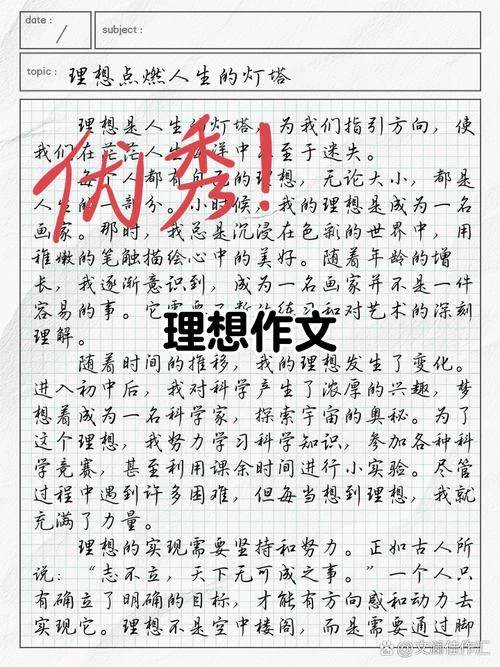 date:
/
subject:
topic:
理想点燃人生的灯塔
理想是人生的灯塔，为我们指引方向，使
我们在茫茫人生洋中至于迷失。
每个人都有自己的理想，无论大小，都是
人生的一部分。小时候，我的理想是成为一名
画家。那时，我总是沉浸在色彩的世界中，用
稚嫩的笔触描绘心中的美好。随着年龄的增
长，我逐渐意识到，成为一名画家并不是一件
容易的事。它需要和对艺术的深刻
理解。
随着时间的推移，我的理想发生了变化。
进入初中后，我对科学产生了浓厚的兴趣，梦
想着成为一名科学家，探索宇宙的奥秘。为了
这个理想，我努力学习科学知识，参加各种科
学竞赛，甚至利用课余时间进行小实验。尽管
过程中遇到许多困难，但每当想到理想，我就
充满了力量。
理想的实现需要坚持和努力。正如古人所
说：“志不立，天下无可成之事。”一个人只
有确立了明确的目标，才能有方向感和动力去
实现它。理想不是空中楼阁，而是需要通过脚
优秀!
理想作文
@文澜佳作汇